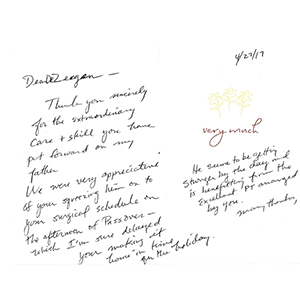 Thank you sincerely
for the extraordinary
care + skill you have
put forward on my
father.
We were very appreciative
of your squeezing him on to
your surgical schedule on
the afternoon of Passover —
which I'm sure delayed
your making it
home in time
for the holiday.
4/27/17
very much
He seems to be getting
stronger by the day and
is benefiting from the
Excellent PT arranged
by you.
Many thanks,